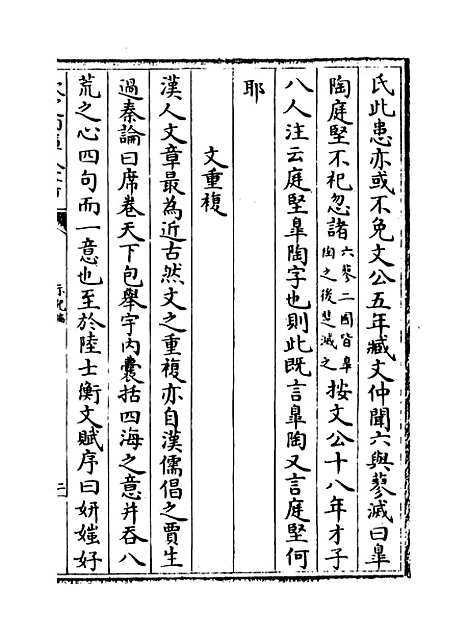 氏此患亦或不免文公五年臧文仲聞六與蓼滅曰臯
陶庭堅不祀忽諸六蓼二國皆臯
陶之後楚滅之按文公十八年才子
八人注云庭堅臯陶字也則此既言臯陶又言庭堅何
耶
文重複
漢人文章最為近古然文之重複亦自漢儒倡之賈生
過秦論曰席卷天下包舉宇内囊括四海之意并吞八
荒之心四句而一意也至於陸士衡文賦序曰妍媸好
二